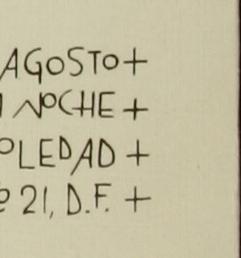 AGOSTO+
NOCHE +
OLEDAD +
21, D.F. +